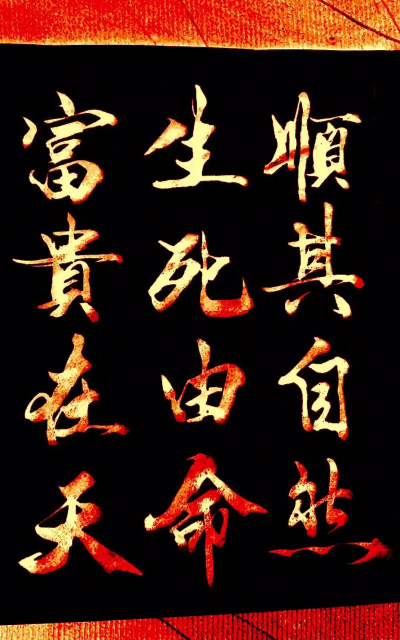 順其自然
生死由命
富貴在天